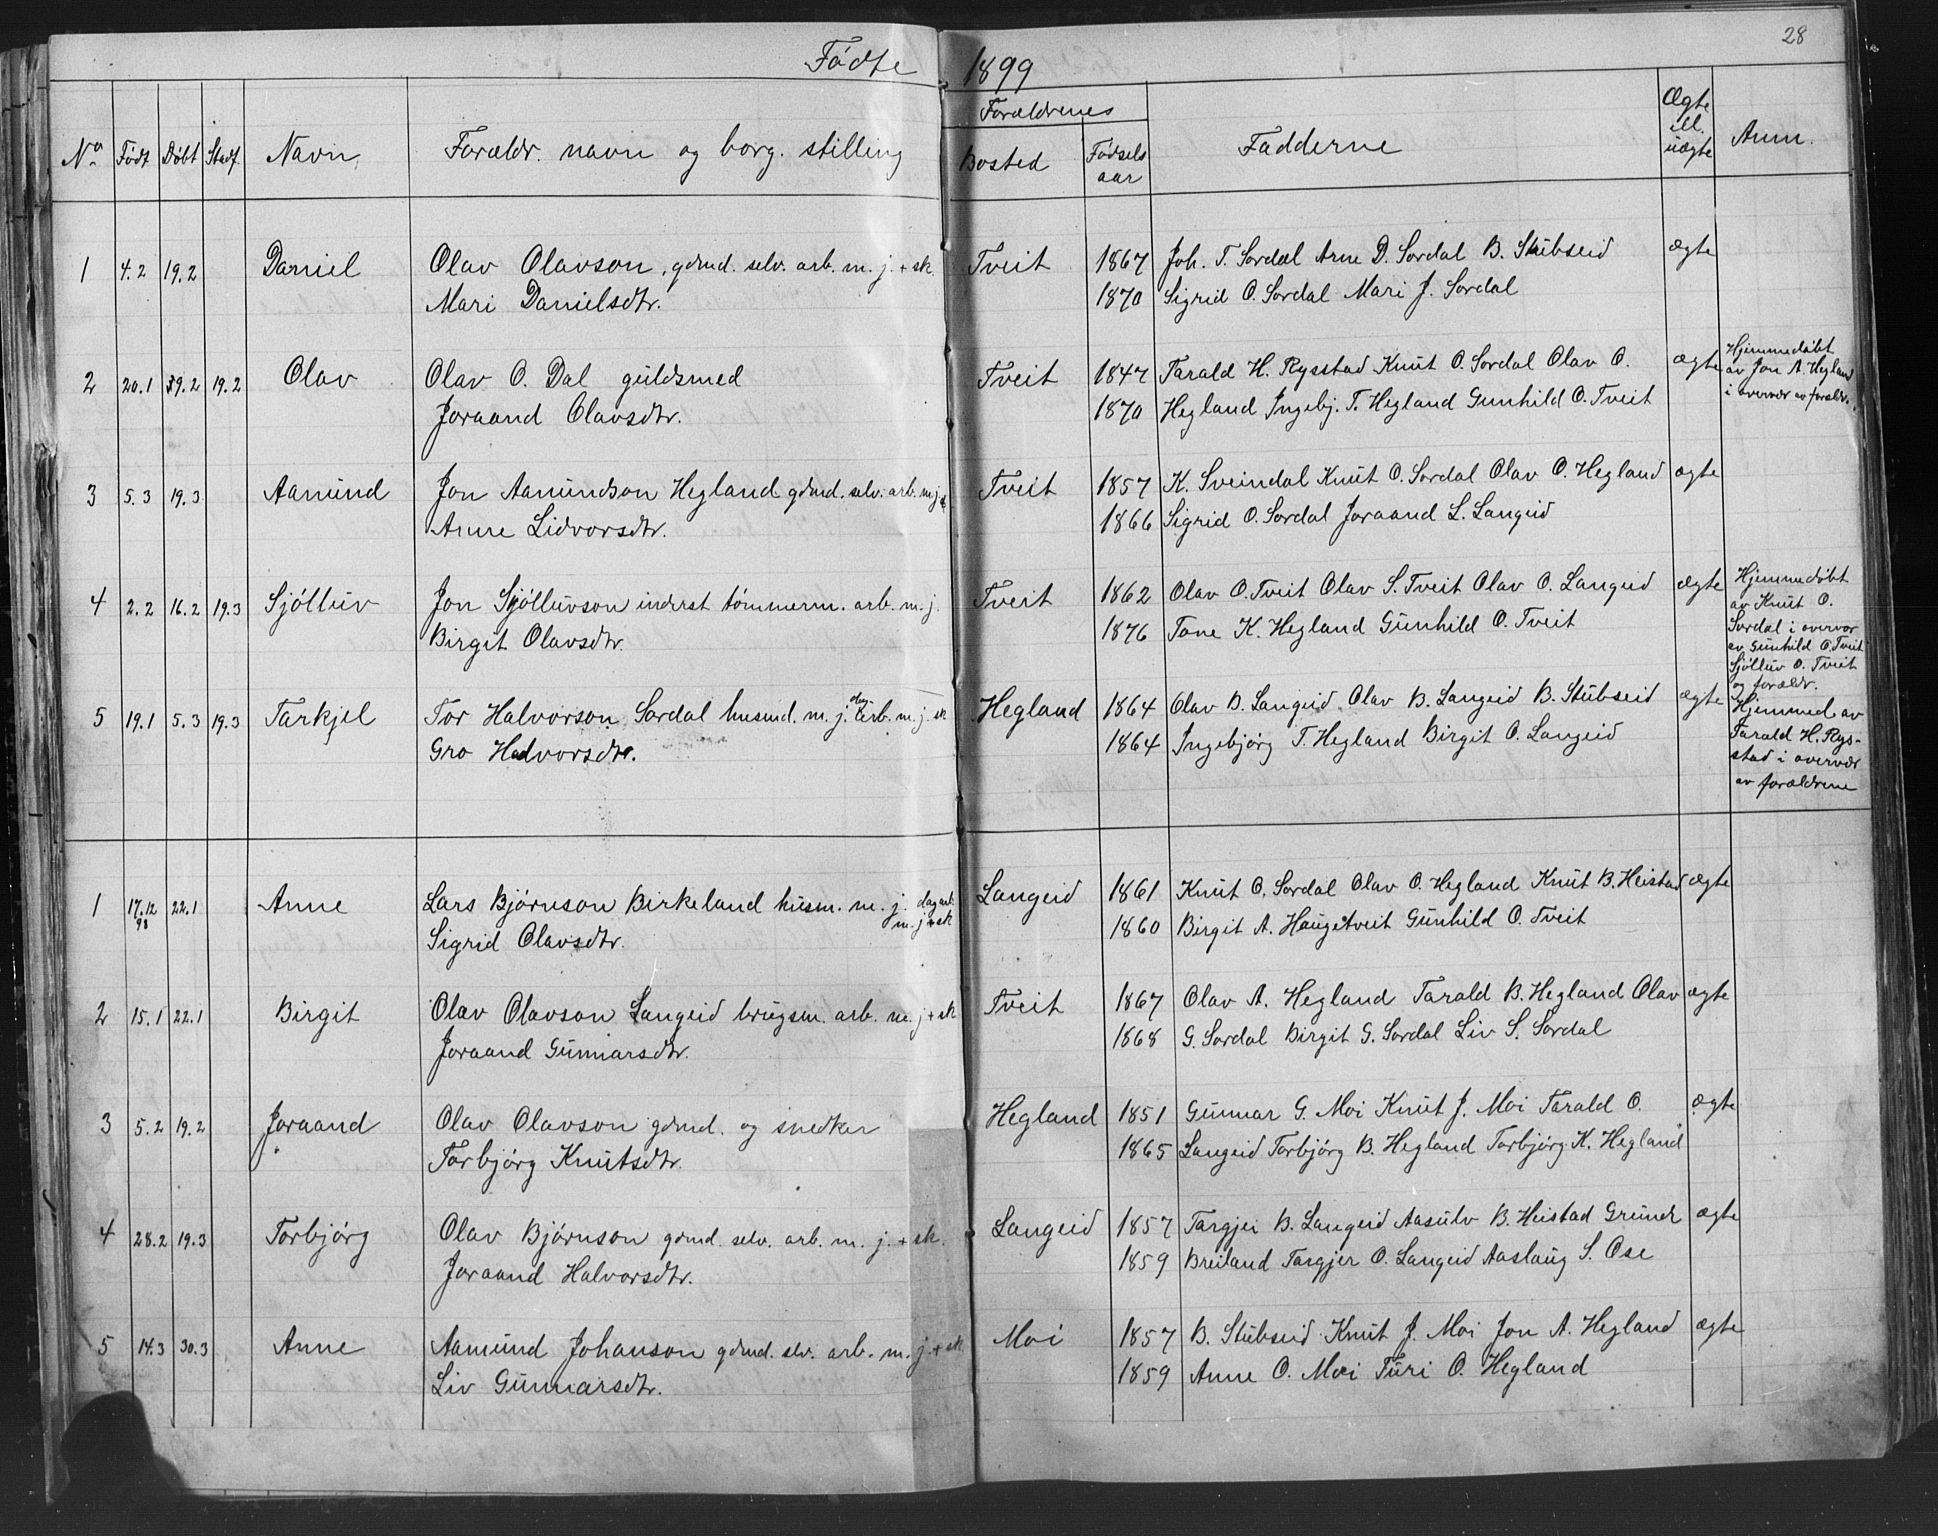 28
Fødte 1899
No Født Døbt Stadf. Navn Forældr. navn og borg. stilling Forældrenes Bosted Fødsels aar Fadderne Ægte ell. uægte Anm.
1 4.2 19.2 Daniel Olav Olavson, gdmd. selv. arb. m. j. + sk. Tveit 1867 Joh. T. Sordal Arne D. Sordal B. Stubseid ægte
Mari Danielsdtr. 1870 Sigrid O. Sordal Mari J. Sordal
2 20.1 19.2 19.2 Olav Olav O. Dal guldsmed Tveit 1847 Tarald H. Rysstad Knut O. Sordal Olav O. ægte Hjemmedøbt
av Jon A. Hegland
Joraand Olavsdtr. 1870 Hegland Ingebj. T. Hegland Gunhild O. Tveit i overvær av forældr.
3 5.3 19.3 Aamund Jon Aamundson Hegland gdmd. selv. arb. m. j. Tveit 1857 K. Sveindal Knut O. Sordal Olav O. Hegland ægte
Anne Lidvorsdtr. 1866 Sigrid O. Sordal Joraand L. Langeid
4 2.2 16.2 19.3 Sjølluv Jon Sjølluvson inderst tømmerm. arb. m. j. Tveit 1862 Olav O. Tveit Olav S. Tveit Olav O. Langeid ægte Hjemmedøbt
av Knut O.
Birgit Olavsdtr. 1876 Tone K. Hegland Gunhild O. Tveit Sordal i overvær
av Gunhild O. Tveit
Sjølluv O. Tveit
og forældr.
5 19.1 5.3 19.3 Tarkjel Tor Halvorson Sordal husmd. m. j. dag arb. m. j. sk Hegland 1864 Olav B. Langeid Olav B. Langeid B. Stubseid ægte Hjemmed av
Gro Halvorsdtr. 1864 Ingebjørg T. Hegland Birgit O. Langeid Tarald H. Rys-
stad i overvær
av forældrene
1 17.12 98 22.1 Anne Lars Bjørnson Birkeland husm. m. j. dagarb. m. j. + sk Langeid 1861 Knut O. Sordal Olav O. Hegland Knut B. Heistad ægte
Sigrid Olavsdtr. 1860 Birgit A. Haugetveit Gunhild O. Tveit
2 15.1 22.1 Birgit Olav Olavson Langeid brugsm. arb. m. j + sk Tveit 1867 Olav A. Hegland Tarald B. Hegland Olav ægte
Joraand Gunnarsdtr. 1868 G. Sordal Birgit G. Sordal Liv S. Sordal
3 5.2 19.2 Joraand Olav Olavson gdmd. og snedker Hegland 1851 Gunnar G. Moi Knut J. Moi Tarald O. ægte
Torbjørg Knutsdtr. 1865 Langeid Torbjørg B. Hegland Torbjørg K. Hegland
4 28.2 19.3 Torbjørg Olav Bjørnson gdmd. selv. arb. m. j. + sk. Langeid 1857 Targjei B. Langeid Aasulv B. Heistad Grunde ægte
Joraand Halvorsdtr. 1859 Breiland Targjer O. Langeid Aaslaug S. Ose
5 14.3 30.3 Anne Aamund Johanson gdmd. slv. arb. m. j. + sk. Moi 1857 B. Stubseid Knut J. Moi Jon A. Hegland ægte
Liv Gunnarsdtr. 1859 Anne O. Moi Turi O. Hegland